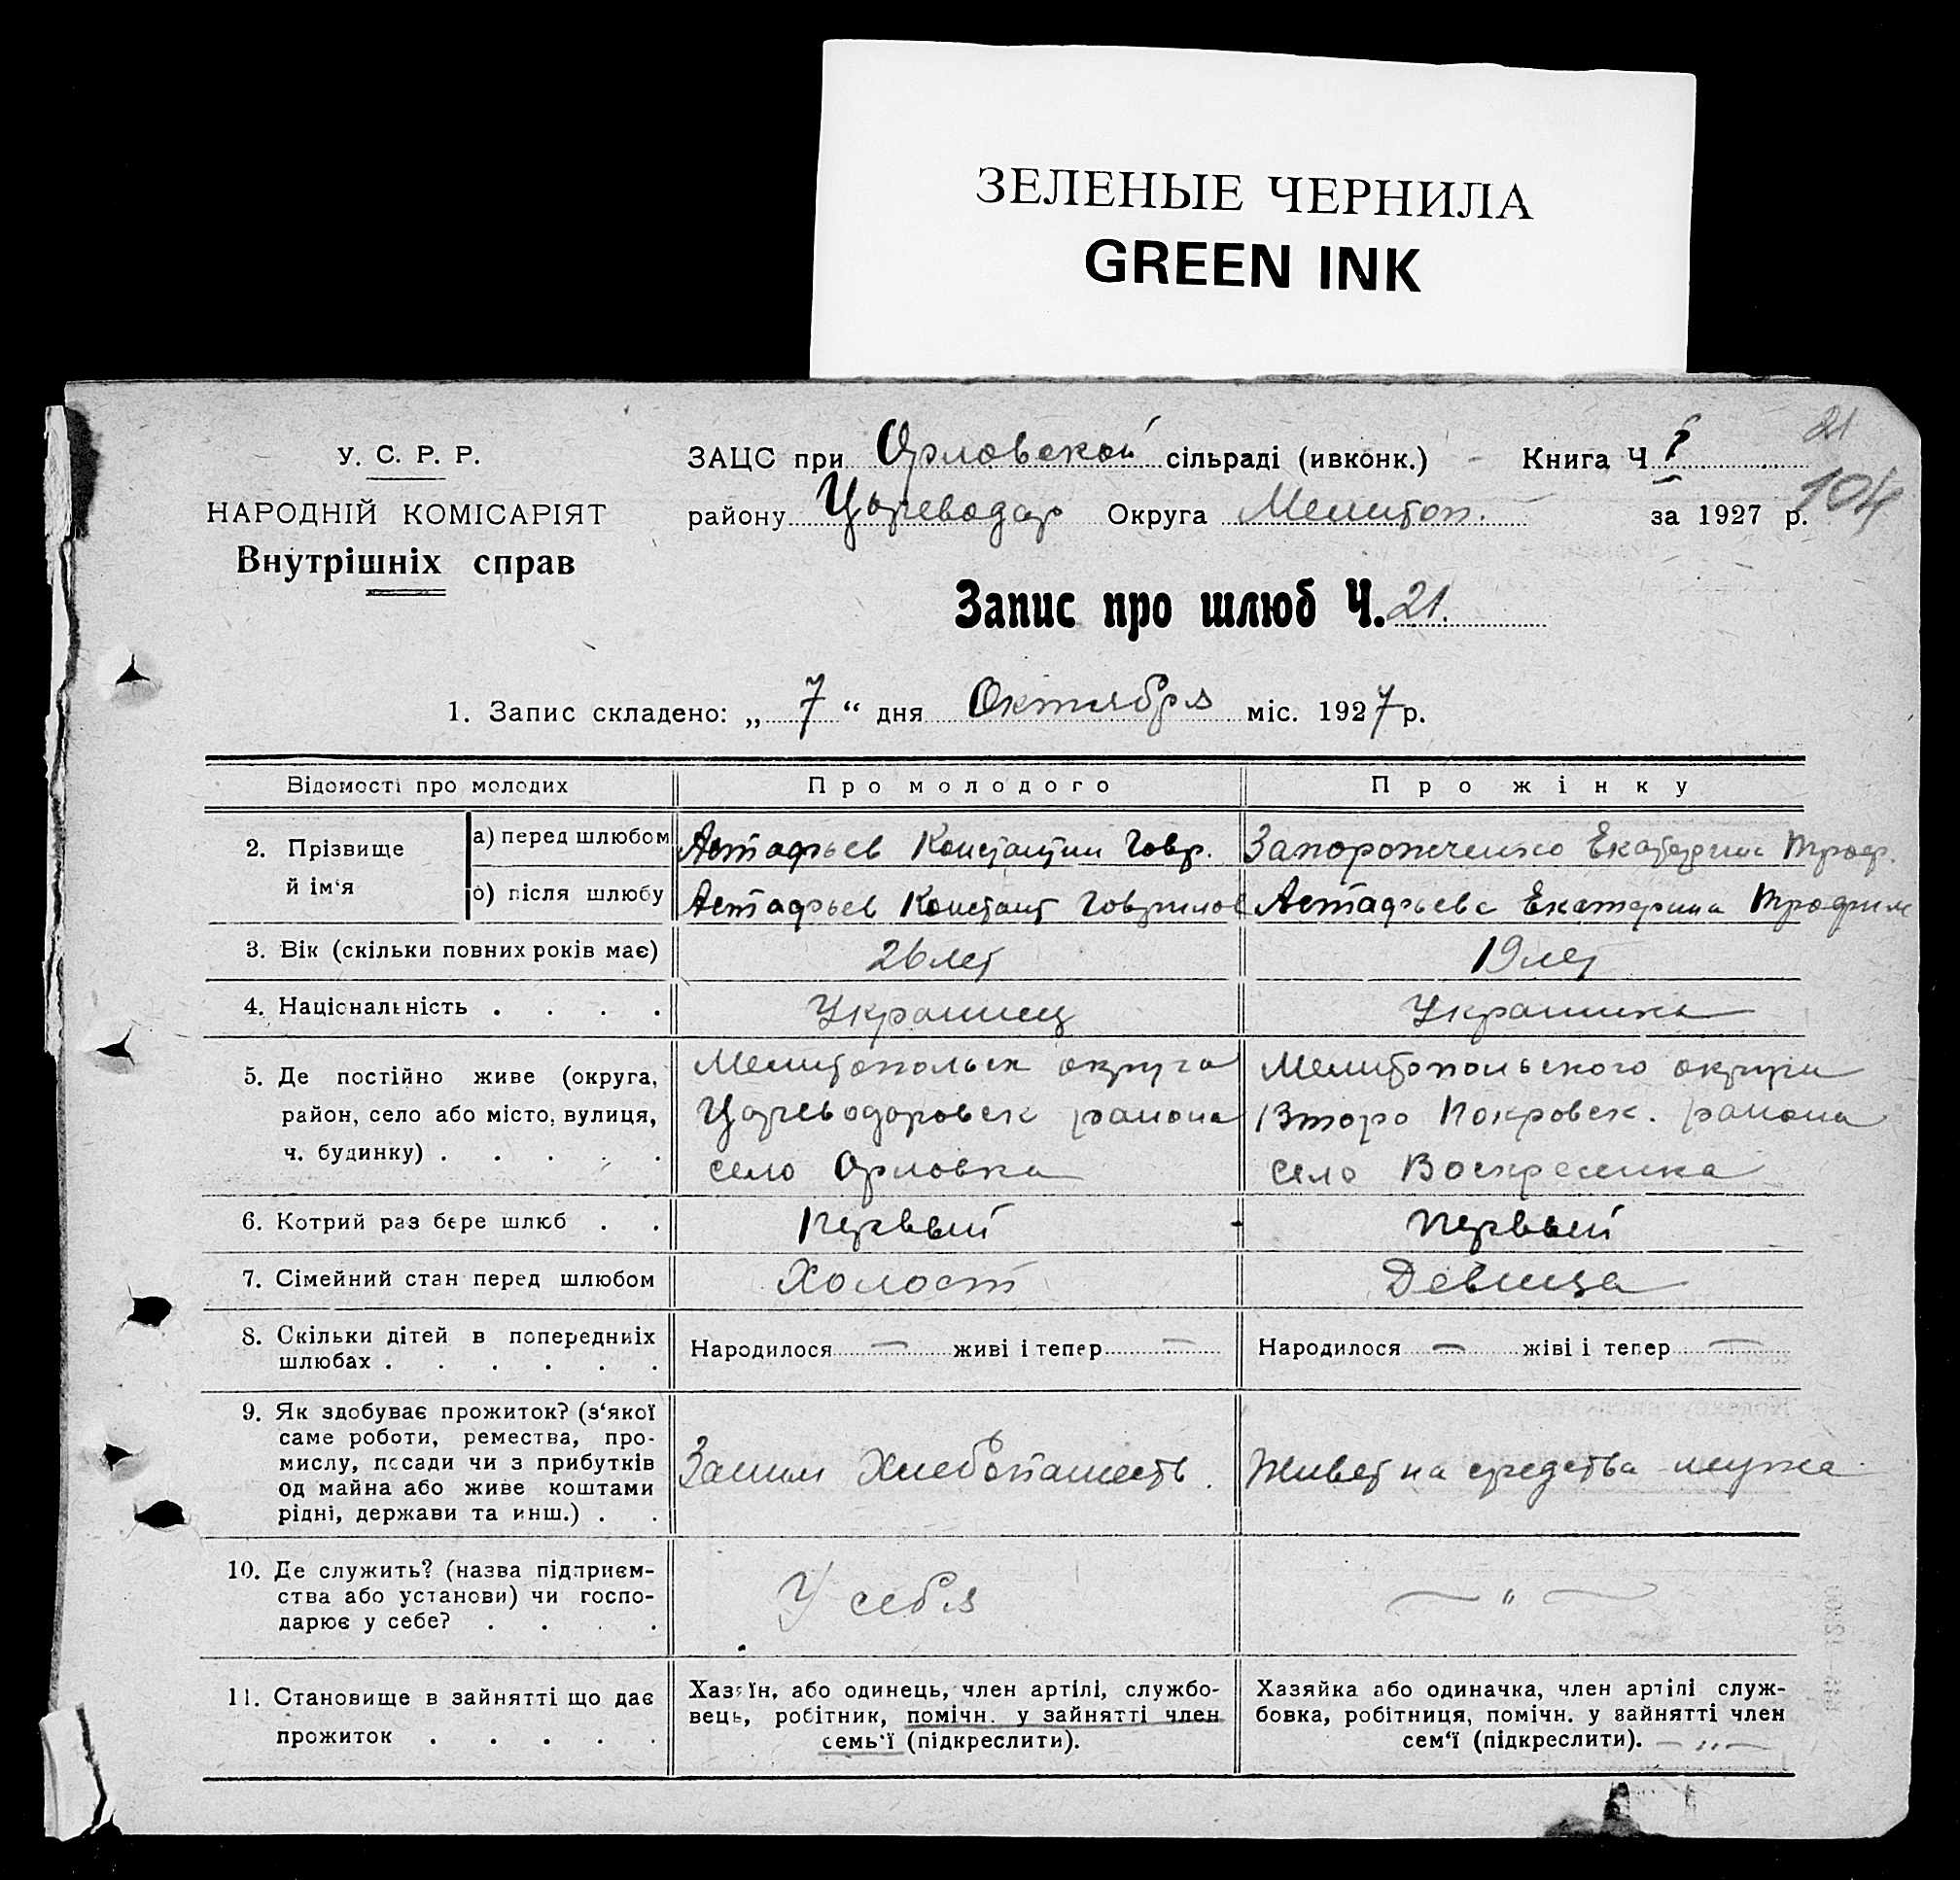 ЗЕЛЕНЫЕ ЧЕРНИЛА
GREEN INK
21
104
У. С. Р. Р.
НАРОДНІЙ КОМІСАРІЯТ
Внутрішніх справ
ЗАЦС при Орловской сільраді (ивконк.) - Книга Ч
району Цареводар Округа Мелитоп. за 1927 р.
Запис про шлюб Ч. 21.
1. Запис складено: „ 7 “ дня Октября міс. 1927 р.
Відомості про молодих Про молодого Про жінку
2. Прізвище й ім‘я
а) перед шлюбом Астафьев Константин Гавр. Запорожченко Екатерина Троф.
б) після шлюбу Астафьев Констант Гаврилов Астафьева Екатерина Трофим
3. Вік (скільки повних років має) 26 лет 19 лет
4. Національність . . . . Украинец Украинка
5. Де постійно живе (округа, район, село або місто, вулиця, ч. будинку) . . . . .
Мелитопольск округа
Цареводаровск района
село Орловка
Мелитопольского округи
Второ Покровск. района
село Воскресенка
6. Котрий раз бере шлюб . . Первый Первый
7. Сімейний стан перед шлюбом Холост Девица
8. Скільки дітей в попередниіх
шлюбах . . . . . .
Народилося — живі і тепер —
Народилося — жіві і тепер —
9. Як здобуває прожиток? (з‘якої
саме роботи, ремества, про-
мислу, посади чи з прибутків
од майна або живе коштами
рідні, держави та инш.) . .
Заним Хлебопашеств.
Живет на средства мужа
10. Де служить? (назва підприєм-
ства або установи) чи госпо-
дарює у себе? . . . .
У себя
— " —
11. Становище в зайнятті що дає
прожиток . . . . .
Хазяїн, або одинець, член артілі, службо-
вець, робітник, помічн. у зайнятті член
семь'ї (підкреслити).
Хазяйка або одиначка, член артілі служ-
бовка, робітниця, помічн. у зайнятті член
сем‘ї (підкреслити). — „ —